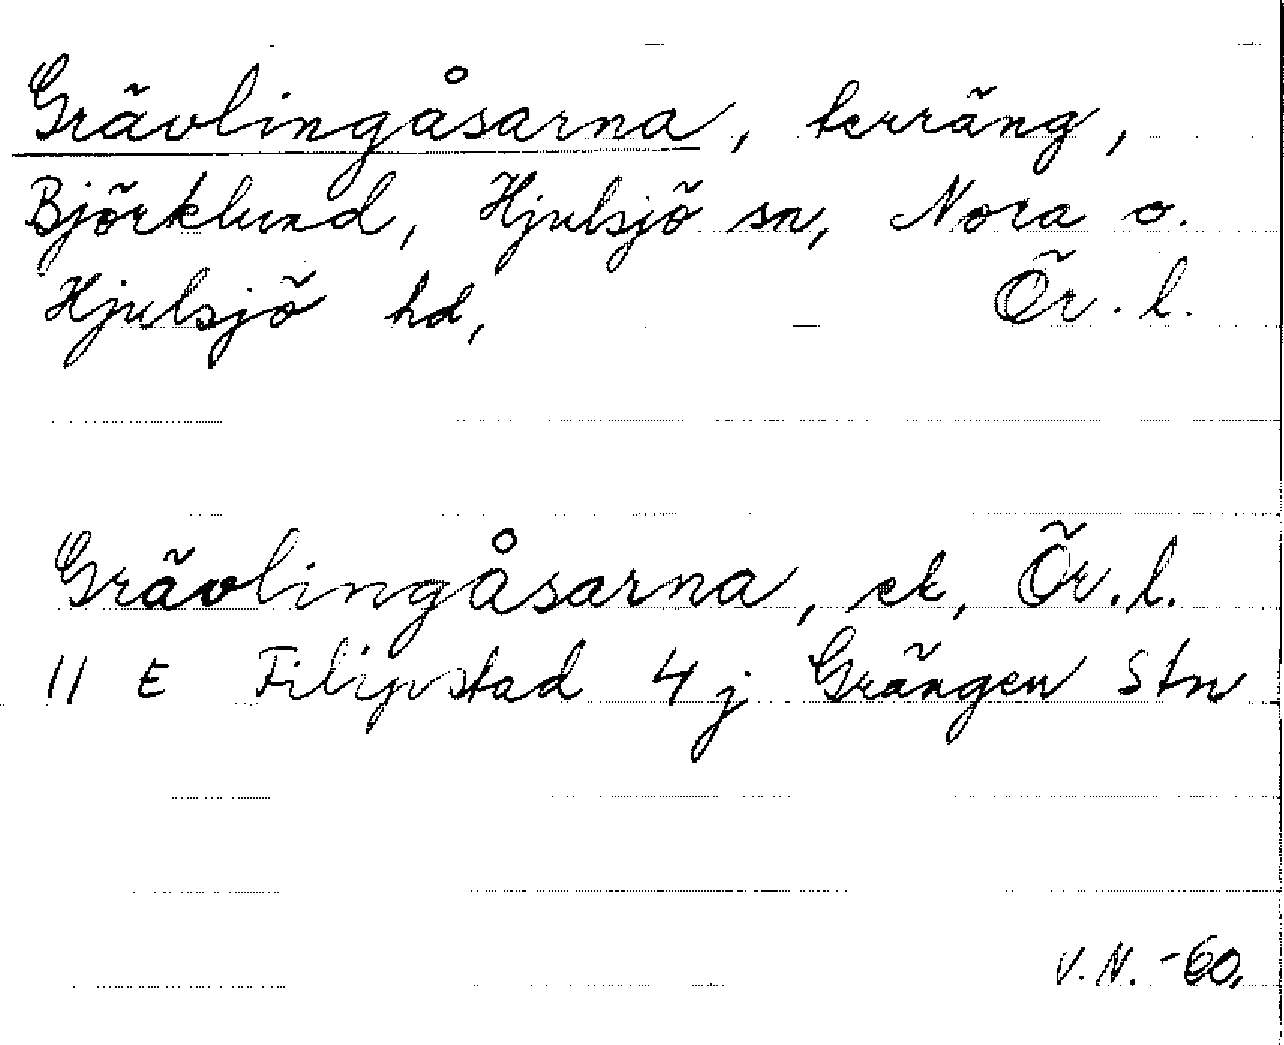 Grävlingåsarna, terräng,
Björklund, Hjulsjö sn, Nora o.
Hjulsjö hd, Ör. l.
Grävlingåsarna, ek, Ör. l.
11 E Filipstad 4 j Grängen Stn
V.N. -60.